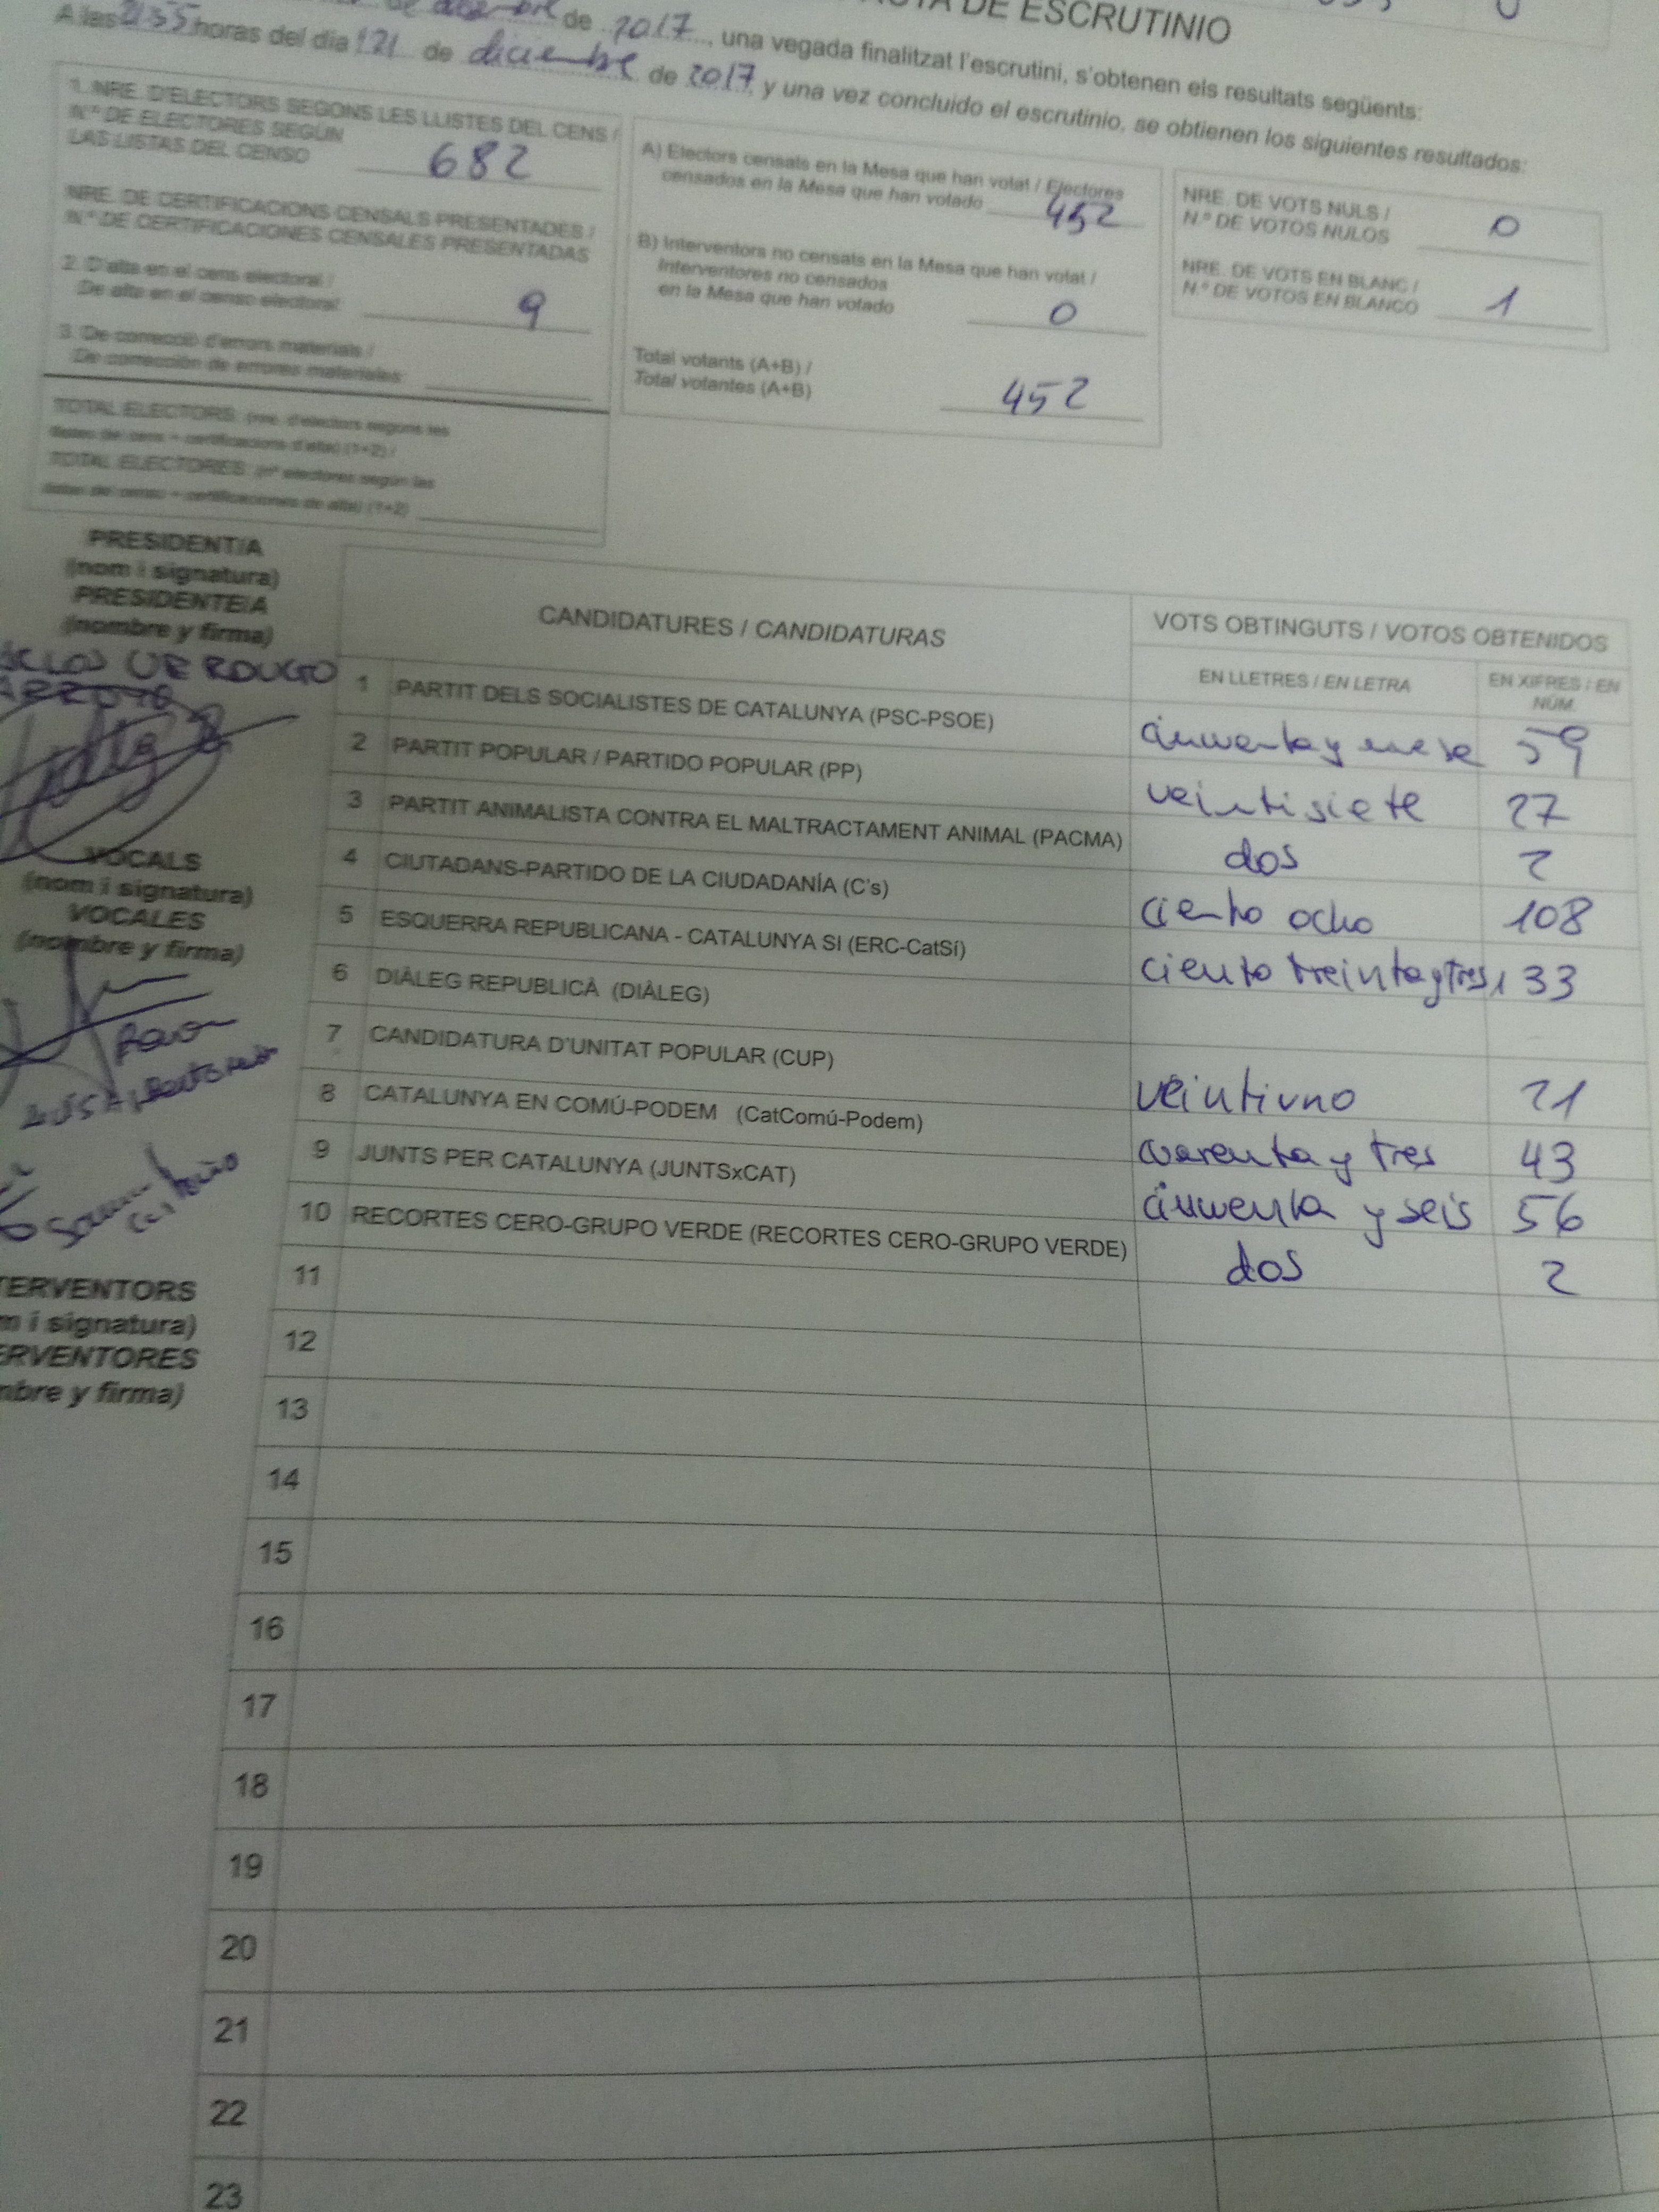 DE ESCRUTINIO
de 2017, una vegada finalitzat l'escrutini, s'obtenen els resultats següents:
A las 21:55 horas del día 21 de diciembre de 2017 y una vez concluido el escrutinio, se obtienen los siguientes resultados:
1. NRE. D'ELECTORS SEGONS LES LLISTES DEL CENS /
N.º DE ELECTORES SEGÚN
LAS LISTAS DEL CENSO 682
NRE. DE CERTIFICACIONS CENSALS PRESENTADES /
N.º DE CERTIFICACIONES CENSALES PRESENTADAS
2. D'alta en el cens electoral /
De alta en el censo electoral: 9
3. De correcció d'errors materials /
De corrección de errores materiales:
TOTAL ELECTORS: (nre. d'electors segons les
llistes del cens + certificacions d'alta) (1+2) /
TOTAL ELECTORES: (nº electores según las
listas del censo + certificaciones de alta) (1+2)
A) Electors censats en la Mesa que han votat / Electores
censados en la Mesa que han votado 452
B) Interventors no censats en la Mesa que han votat /
Interventores no censados
en la Mesa que han votado 0
Total votants (A+B) /
Total votantes (A+B) 452
NRE. DE VOTS NULS /
N.º DE VOTOS NULOS 0
NRE. DE VOTS EN BLANC /
N.º DE VOTOS EN BLANCO 1
PRESIDENT/A
(nom i signatura)
PRESIDENTE/A
(nombre y firma)
VOCALS
(nom i signatura)
VOCALES
(nombre y firma)
TERVENTORS
m i signatura)
ERVENTORES
mbre y firma)
CANDIDATURES / CANDIDATURAS
VOTS OBTINGUTS / VOTOS OBTENIDOS
EN LLETRES / EN LETRA
EN XIFRES / EN
NÚM.
1 PARTIT DELS SOCIALISTES DE CATALUNYA (PSC-PSOE) cincuenta y nueve 59
2 PARTIT POPULAR / PARTIDO POPULAR (PP) veintisiete 27
3 PARTIT ANIMALISTA CONTRA EL MALTRACTAMENT ANIMAL (PACMA) dos 2
4 CIUTADANS-PARTIDO DE LA CIUDADANÍA (C's) ciento ocho 108
5 ESQUERRA REPUBLICANA - CATALUNYA SI (ERC-CatSí) ciento treinta y tres 133
6 DIÀLEG REPUBLICÀ (DIÀLEG)
7 CANDIDATURA D'UNITAT POPULAR (CUP) veintiuno 21
8 CATALUNYA EN COMÚ-PODEM (CatComú-Podem) cuarenta y tres 43
9 JUNTS PER CATALUNYA (JUNTSxCAT) cincuenta y seis 56
10 RECORTES CERO-GRUPO VERDE (RECORTES CERO-GRUPO VERDE) dos 2
11
12
13
14
15
16
17
18
19
20
21
22
23